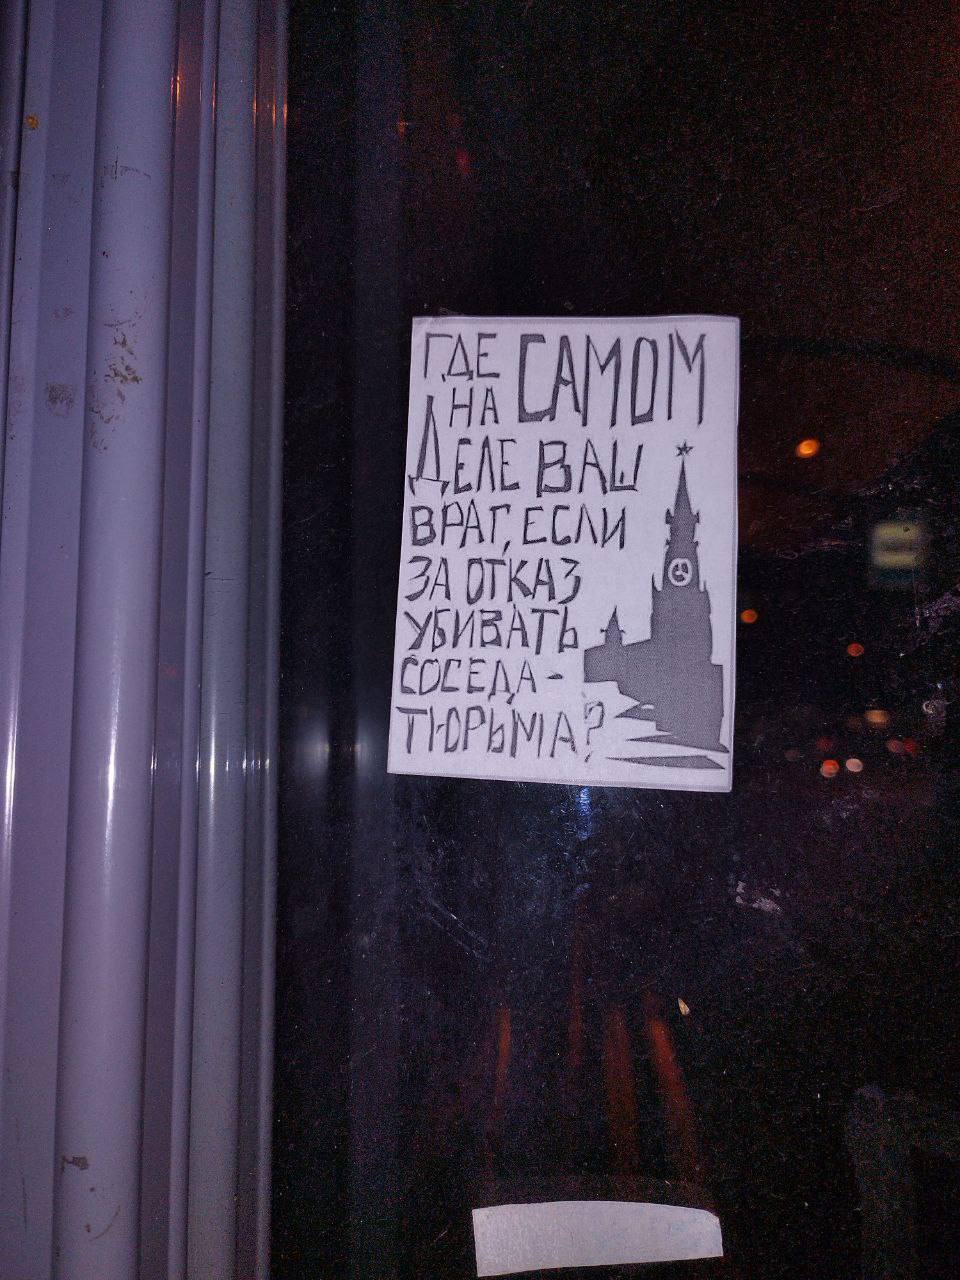 ГДЕ
НА САМОМ
ДЕЛЕ ВАШ
ВРАГ, ЕСЛИ
ЗА ОТКАЗ
УБИВАТЬ
СОСЕДА-
ТЮРЬМА?